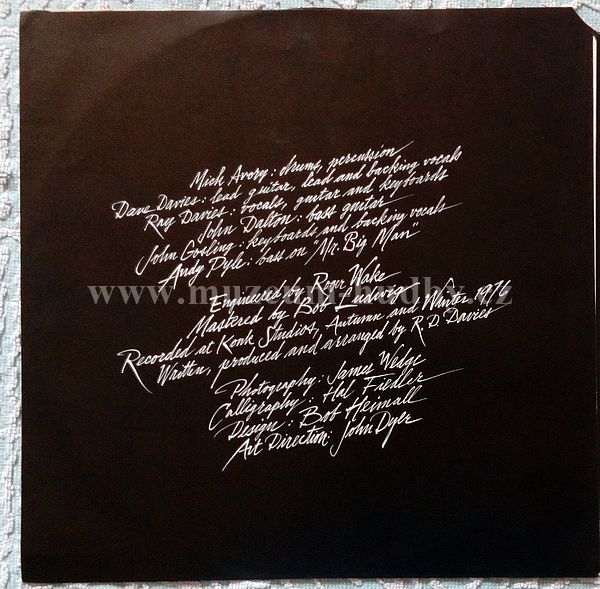 Mick Avory: drums, percussion
Dave Davies: lead guitar, lead and backing vocals
Ray Davies: vocals, guitar and keyboards
John Dalton: bass guitar
John Gosling: keyboards and backing vocals
Andy Pyle: bass on "Mr. Big Man"
www.muzeum-hudby.cz
Engineered by Roger Wake
Mastered by Bob Ludwig
Recorded at Konk Studios, Autumn and Winter 1976
Written, produced and arranged by R.D. Davies
Photography: James Wedge
Calligraphy: Hal Fiedler
Design: Bob Heimall
Art Direction: John Dyer